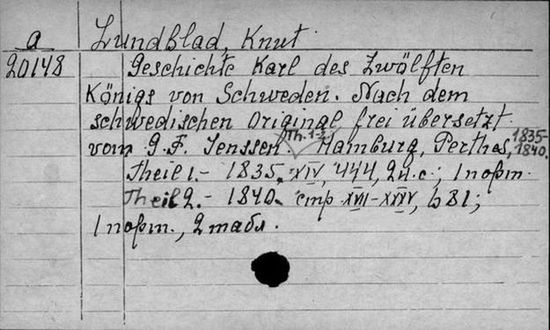 a Lundblad, Knut
20148 Geschichte Karl des Zwölften
Königs von Schweden. Nach dem
schwedischen Original frei übersetzt
vom G. F. Jenssen. Th. 1-2 Hamburg, Perthes, 1835-1840.
Theil 1. - 1835. XIV, 444, 2 н.с.; 1 порт.
Theil 2. - 1840. стр XVI-XXIV, 681;
1 порт., 2 табл.